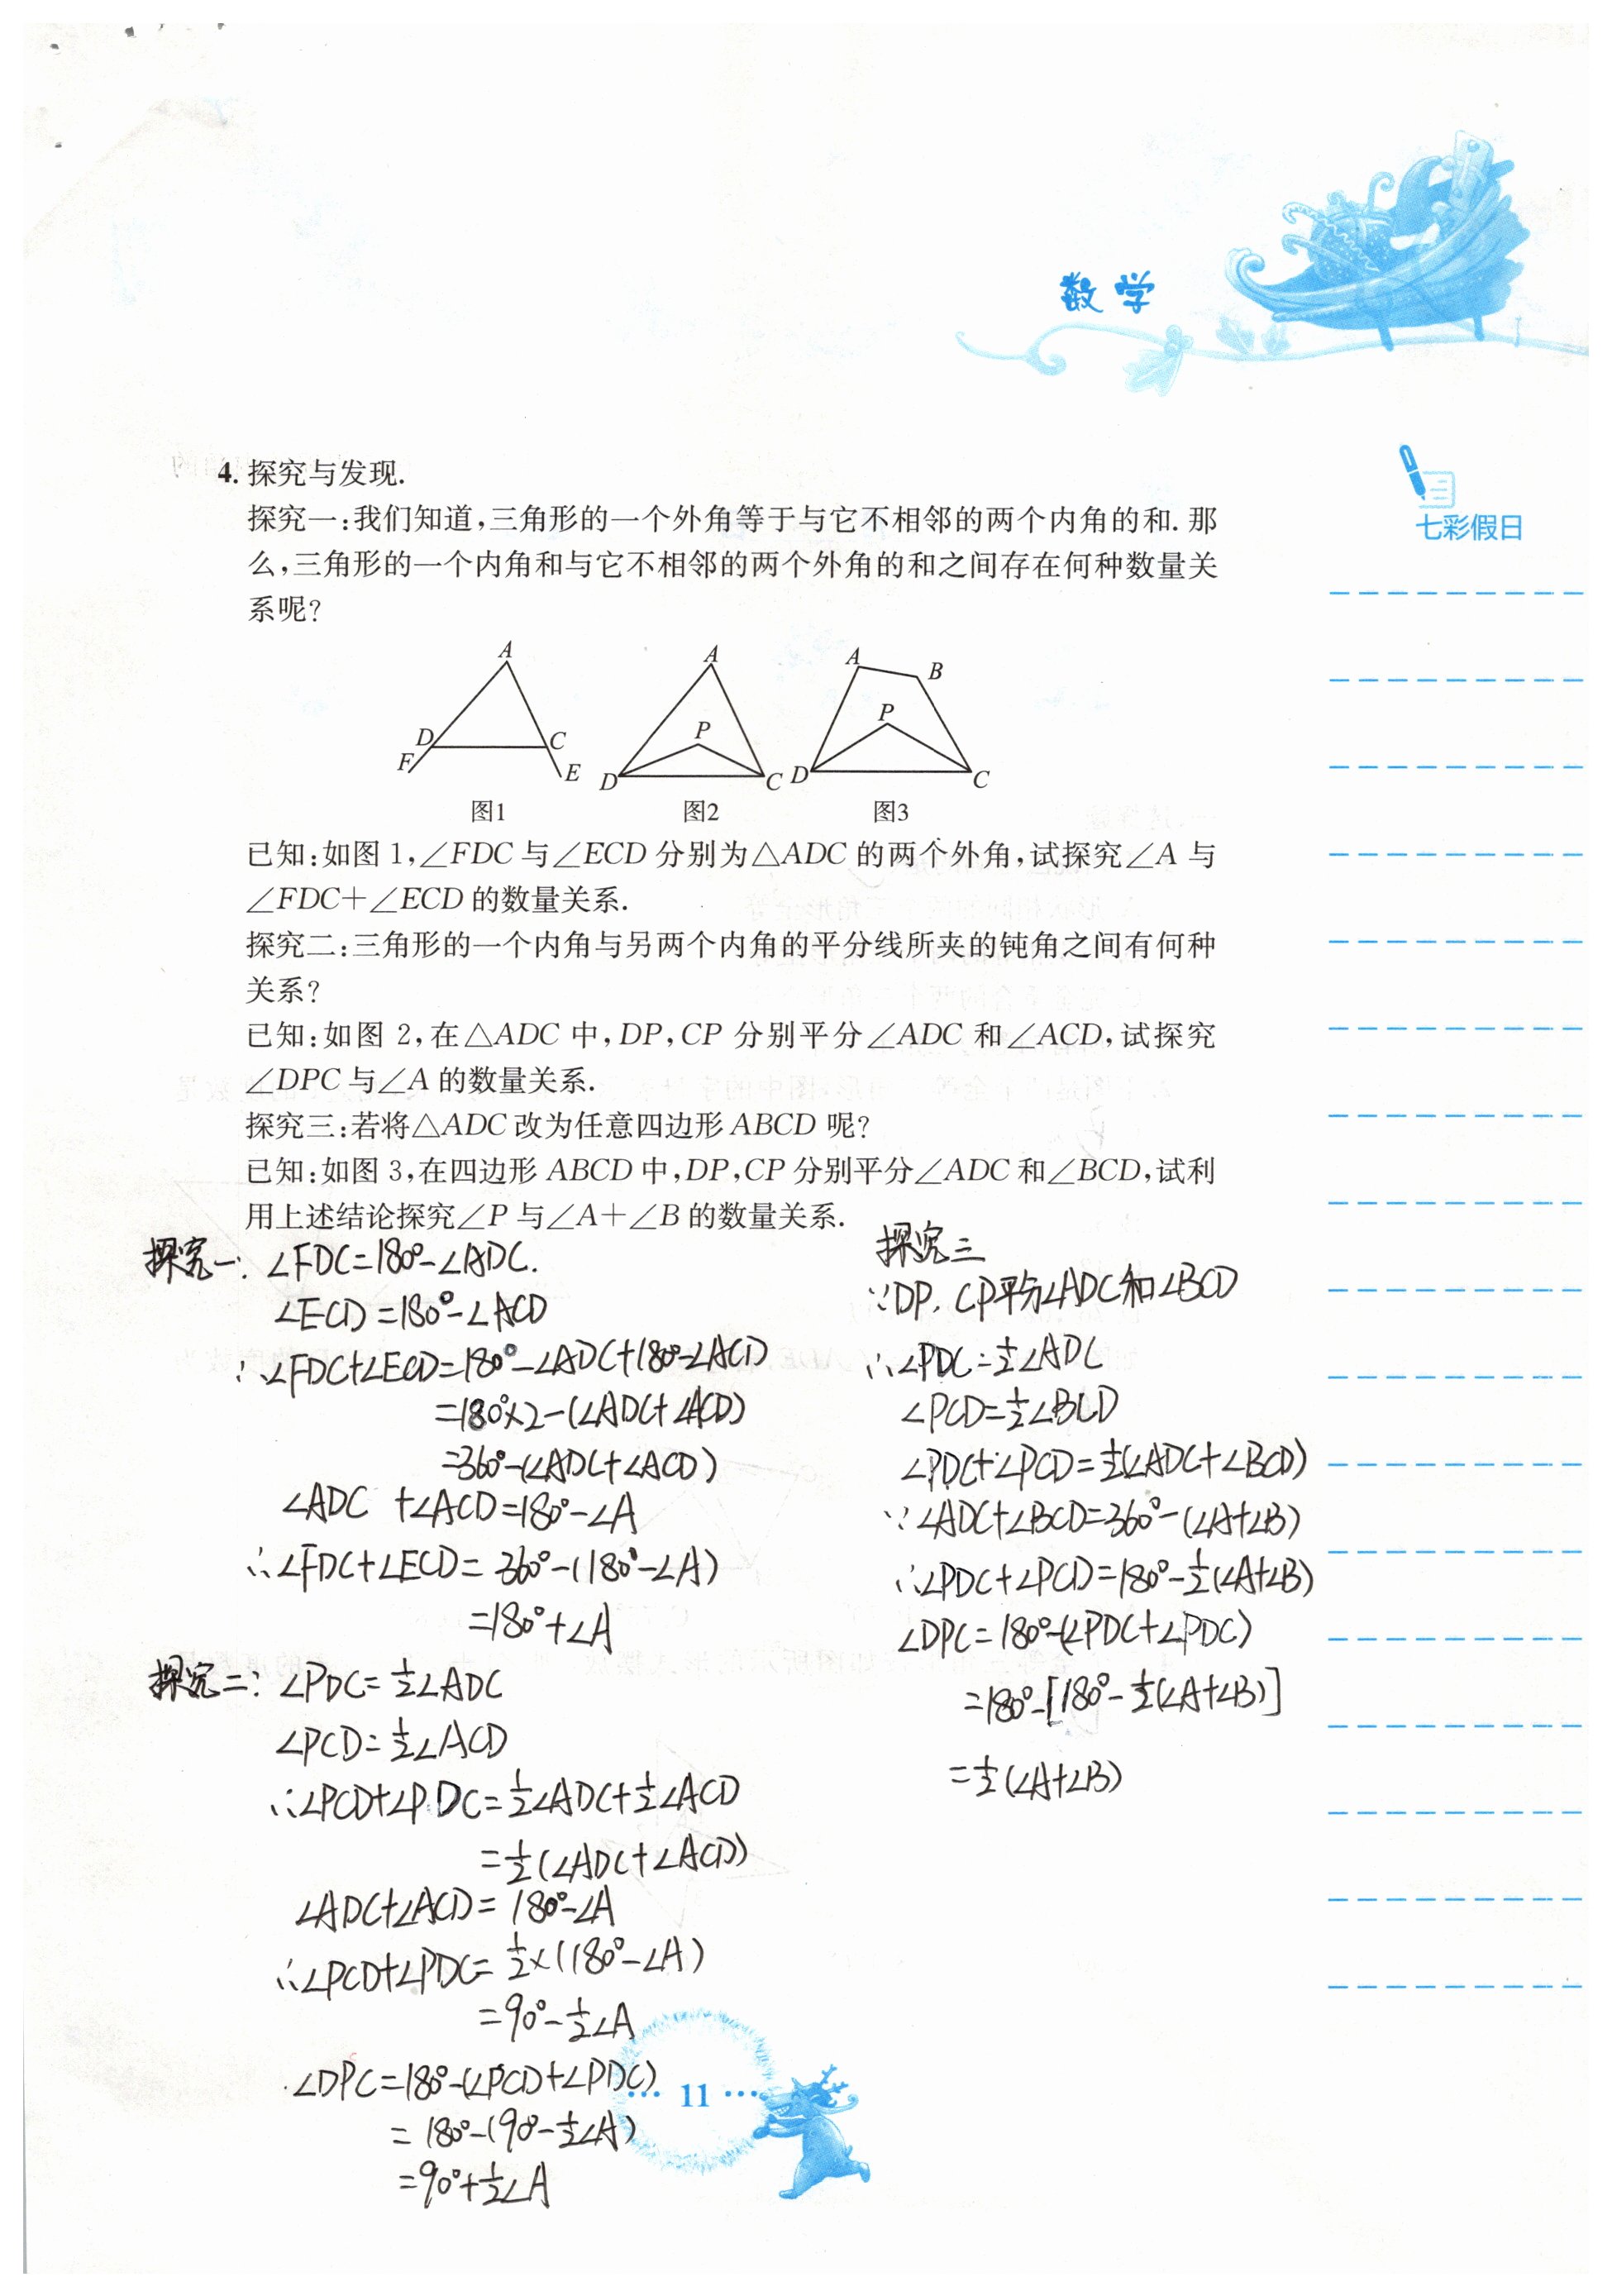 数学
七彩假日
4. 探究与发现.
探究一:我们知道,三角形的一个外角等于与它不相邻的两个内角的和. 那
么,三角形的一个内角和与它不相邻的两个外角的和之间存在何种数量关
系呢?
A
D
C
F
E
图1
A
P
D
C
图2
A
B
P
D
C
图3
已知:如图 1,∠FDC 与∠ECD 分别为△ADC 的两个外角,试探究∠A 与
∠FDC+∠ECD 的数量关系.
探究二:三角形的一个内角与另两个内角的平分线所夹的钝角之间有何种
关系?
已知:如图 2,在△ADC 中,DP,CP 分别平分∠ADC 和∠ACD,试探究
∠DPC 与∠A 的数量关系.
探究三:若将△ADC 改为任意四边形 ABCD 呢?
已知:如图 3,在四边形 ABCD 中,DP,CP 分别平分∠ADC 和∠BCD,试利
用上述结论探究∠P 与∠A+∠B 的数量关系.
探究一: ∠FDC=180°-∠ADC.
∠ECD=180°-∠ACD
∴∠FDC+∠ECD=180°-∠ADC+180°-∠ACD
=180°×2-(∠ADC+∠ACD)
=360°-(∠ADC+∠ACD)
∠ADC +∠ACD=180°-∠A
∴∠FDC+∠ECD= 360°-(180°-∠A)
=180°+∠A
探究二: ∠PDC=½∠ADC
∠PCD=½∠ACD
∴∠PCD+∠PDC=½∠ADC+½∠ACD
=½(∠ADC+∠ACD)
∠ADC+∠ACD= 180°-∠A
∴∠PCD+∠PDC=½×(180°-∠A)
=90°-½∠A
∠DPC=180°-(∠PCD+∠PDC)
= 180°-(90°-½∠A)
=90°+½∠A
探究三
∵DP, CP平分∠ADC和∠BCD
∴∠PDC=½∠ADC
∠PCD=½∠BCD
∠PDC+∠PCD=½(∠ADC+∠BCD)
∵∠ADC+∠BCD=360°-(∠A+∠B)
∴∠PDC+∠PCD=180°-½(∠A+∠B)
∠DPC=180°-(∠PDC+∠PDC)
=180°-[180°-½(∠A+∠B)]
=½(∠A+∠B)
··· 11 ···